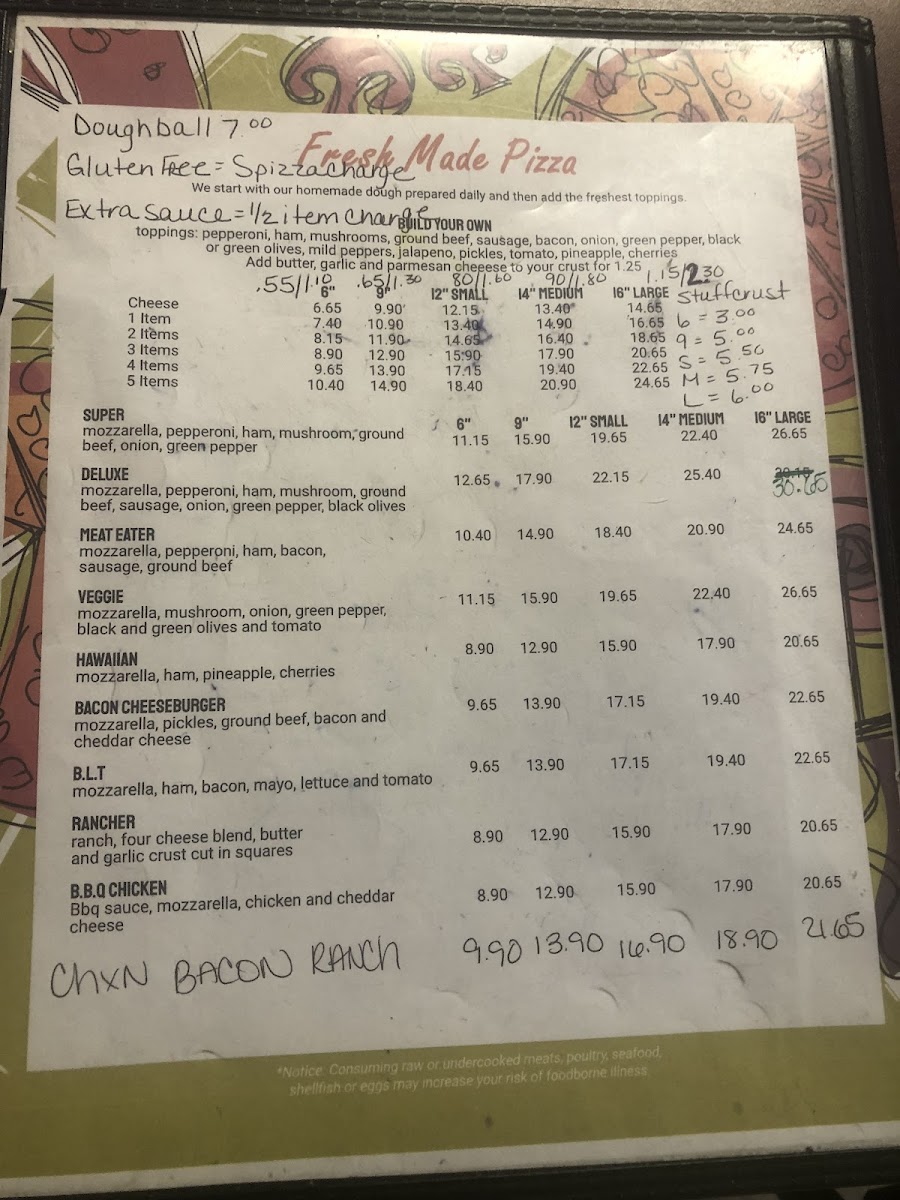 Doughball 7.00
Fresh Made Pizza
Gluten Free = S pizza charge
We start with our homemade dough prepared daily and then add the freshest toppings.
Extra sauce = 1/2 item charge
BUILD YOUR OWN
toppings: pepperoni, ham, mushrooms, ground beef, sausage, bacon, onion, green pepper, black
or green olives, mild peppers, jalapeno, pickles, tomato, pineapple, cherries
Add butter, garlic and parmesan cheeese to your crust for 1.25
.55/1.10 .65/1.30 80/1.60 90/1.80 1.15/2.30
6" 9" 12" SMALL 14" MEDIUM 16" LARGE
Cheese 6.65 9.90 12.15 13.40 14.65
1 Item 7.40 10.90 13.40 14.90 16.65
2 Items 8.15 11.90 14.65 16.40 18.65
3 Items 8.90 12.90 15.90 17.90 20.65
4 Items 9.65 13.90 17.15 19.40 22.65
5 Items 10.40 14.90 18.40 20.90 24.65
Stuffcrust
6 = 3.00
9 = 5.00
S = 5.50
M = 5.75
L = 6.00
6" 9" 12" SMALL 14" MEDIUM 16" LARGE
SUPER
mozzarella, pepperoni, ham, mushroom, ground
beef, onion, green pepper
11.15 15.90 19.65 22.40 26.65
DELUXE
mozzarella, pepperoni, ham, mushroom, ground
beef, sausage, onion, green pepper, black olives
12.65 17.90 22.15 25.40 30.65
MEAT EATER
mozzarella, pepperoni, ham, bacon,
sausage, ground beef
10.40 14.90 18.40 20.90 24.65
VEGGIE
mozzarella, mushroom, onion, green pepper,
black and green olives and tomato
11.15 15.90 19.65 22.40 26.65
HAWAIIAN
mozzarella, ham, pineapple, cherries
8.90 12.90 15.90 17.90 20.65
BACON CHEESEBURGER
mozzarella, pickles, ground beef, bacon and
cheddar cheese
9.65 13.90 17.15 19.40 22.65
B.L.T
mozzarella, ham, bacon, mayo, lettuce and tomato
9.65 13.90 17.15 19.40 22.65
RANCHER
ranch, four cheese blend, butter
and garlic crust cut in squares
8.90 12.90 15.90 17.90 20.65
B.B.Q CHICKEN
Bbq sauce, mozzarella, chicken and cheddar
cheese
8.90 12.90 15.90 17.90 20.65
CHXN BACON RANCH 9.90 13.90 16.90 18.90 21.65
*Notice: Consuming raw or undercooked meats, poultry, seafood,
shellfish or eggs may increase your risk of foodborne illness.